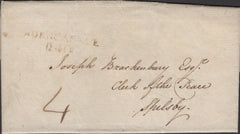 Joseph Brackenbury Esqr.
Clerk of the Peace
Spilsby
4